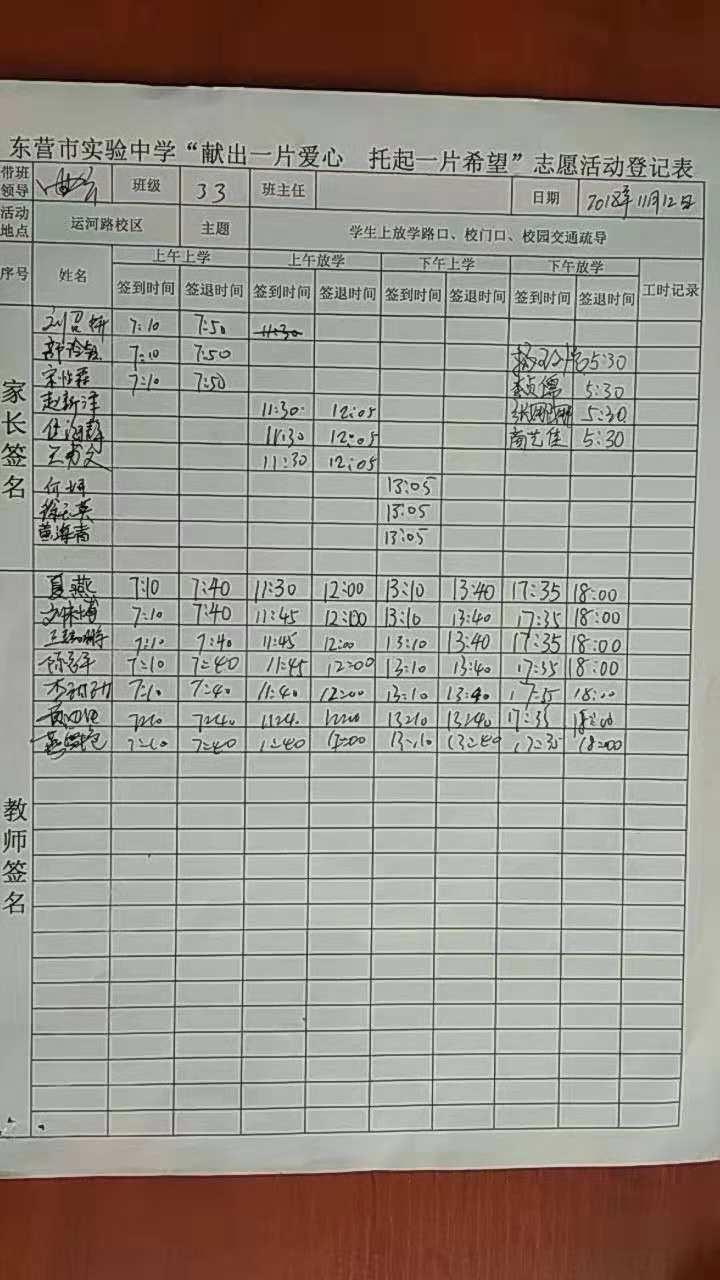 东营市实验中学“献出一片爱心 托起一片希望”志愿活动登记表
带班领导 班级 33 班主任 日期 2018年11月12日
活动地点 运河路校区 主题 学生上放学路口、校门口、校园交通疏导
序号 姓名 上午上学 上午放学 下午上学 下午放学 工时记录
签到时间 签退时间 签到时间 签退时间 签到时间 签退时间 签到时间 签退时间
家长签名
7:10 7:50 11:30
7:10 7:50 5:30
7:10 7:50 5:30
赵新洋 11:30 12:05 5:30
11:30 12:05 商艺佳 5:30
11:30 12:05
13:05
13:05
黄海青 13:05
教师签名
夏燕 7:10 7:40 11:30 12:00 13:10 13:40 17:35 18:00
7:10 7:40 11:45 12:00 13:10 13:40 17:35 18:00
7:10 7:40 11:45 12:00 13:10 13:40 17:35 18:00
7:10 7:40 11:45 12:00 13:10 13:40 17:35 18:00
7:10 7:40 11:40 12:00 13:10 13:40 17:35 18:00
7:10 7:40 11:40 12:00 13:10 13:40 17:35 18:00
7:10 7:40 11:40 12:00 13:10 13:40 17:35 18:00